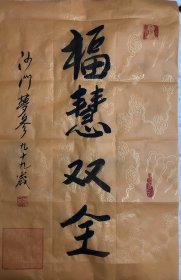 福慧双全
沙门梦参九十九岁